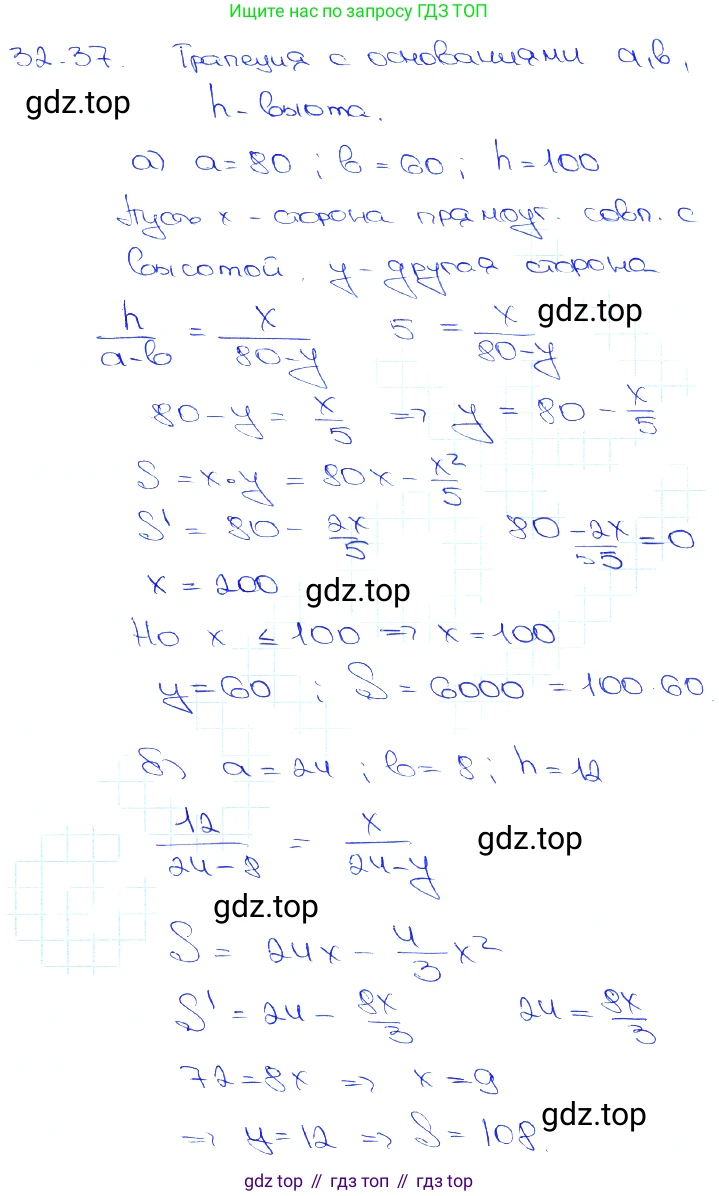 Ищите нас по запросу ГДЗ ТОП
32.37. Трапеция с основаниями a, b,
gdz.top
h - высота.
а) a = 80 ; b = 60 ; h = 100
Пусть x - сторона прямоуг. совп. с
высотой. y - другая сторона
h/(a-b) = x/(80-y) 5 = x/(80-y)
gdz.top
80 - y = x/5 => y = 80 - x/5
S = x·y = 80x - x²/5
S' = 80 - 2x/5 80 - 2x/55 = 0
x = 200
gdz.top
Но x ≤ 100 => x = 100
y = 60 ; S = 6000 = 100·60.
б) a = 24 ; b = 8 ; h = 12
12/(24-8) = x/(24-y)
gdz.top
gdz.top
S = 24x - 4/3 x²
S' = 24 - 8x/3 24 = 8x/3
72 = 8x => x = 9
gdz.top
=> y = 12 => S = 108.
gdz.top // гдз топ // gdz.top